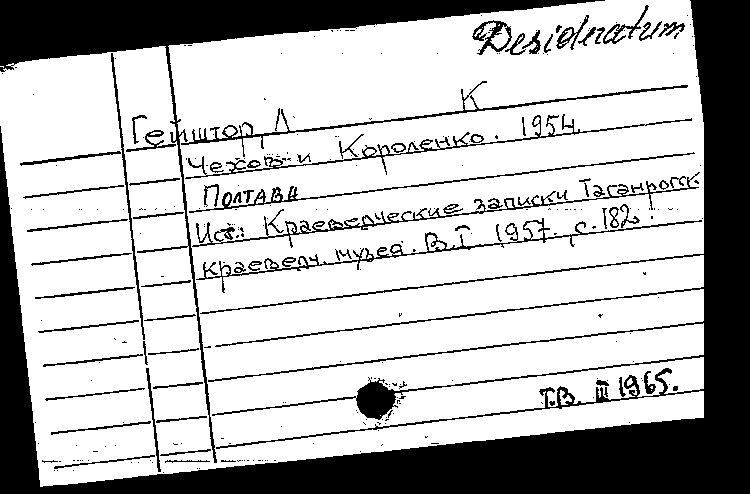 Desideratum
К
Гейштор, Л
Чехов и Короленко. 1954
Полтава
Ист: Краеведческие записки Таганрогск
краеведч. музея. В. I 1957. с. 182.
Т.В. III 1965.